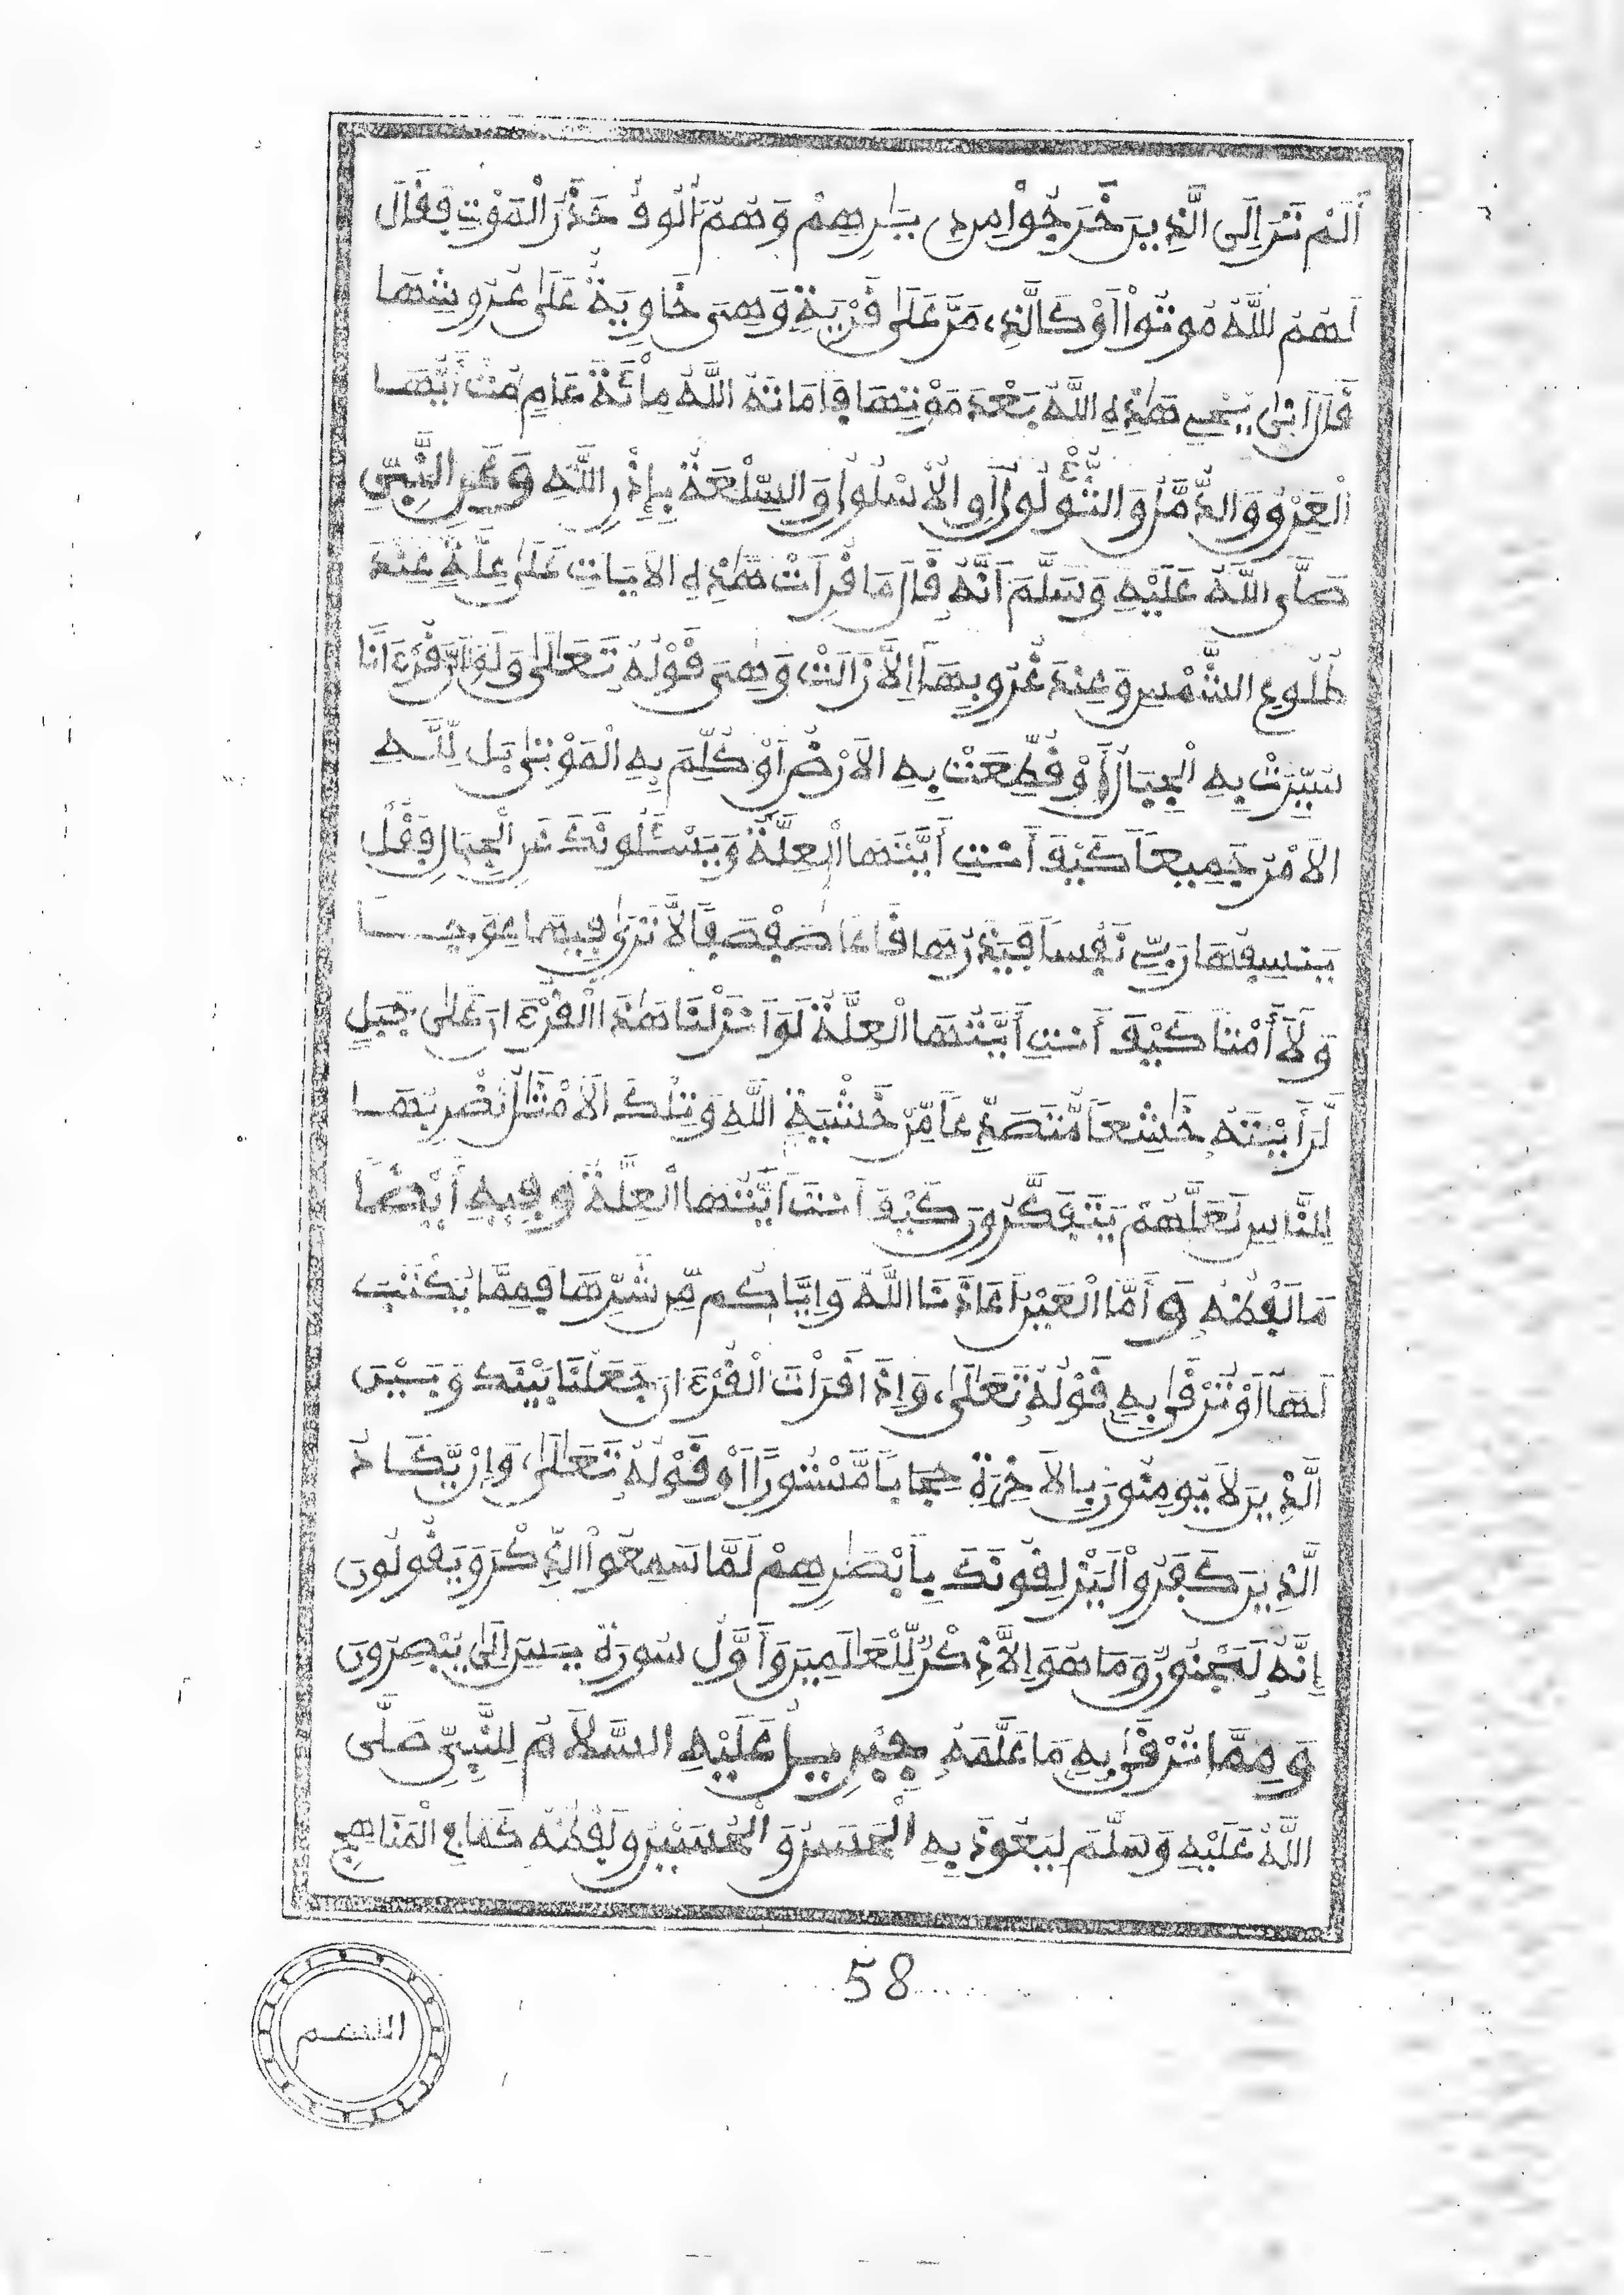 أَلَمْ تَرَ إِلَى الَّذِينَ خَرَجُواْ مِن دِيَـٰرِهِمْ وَهُمْ أُلُوفٌ حَذَرَ الْمَوْتِ فَقَالَ
لَهُمُ اللَّهُ مُوتُواْ أَوْ كَالَّذِي مَرَّ عَلَىٰ قَرْيَةٍ وَهِيَ خَاوِيَةٌ عَلَىٰ عُرُوشِهَا
قَالَ أَنَّىٰ يُحْيِي هَـٰذِهِ اللَّهُ بَعْدَ مَوْتِهَا فَأَمَاتَهُ اللَّهُ مِاْئَةَ عَامٍ مُتْ أَيُّهَا
الْعِرْقُ وَالدُّمَّلُ وَالثُّؤْلُولُ أَوِ الأُسْلُولُ وَالسِّلْعَةُ بِإِذْنِ اللَّهِ وَعَنِ النَّبِيِّ
صَلَّى اللَّهُ عَلَيْهِ وَسَلَّمَ أَنَّهُ قَالَ مَا قُرِأَتْ هَـٰذِهِ الآيَاتِ عَلَىٰ عِلَّةٍ عِنْدَ
طُلُوعِ الشَّمْسِ وَعِنْدَ غُرُوبِهَا إِلاَّ زَالَتْ وَهِيَ قَوْلُهُ تَعَالَىٰ وَلَوَ أَنَّ قُرْءَاناً
سُيِّرَتْ بِهِ الْجِبَالُ أَوْ قُطِّعَتْ بِهِ الاَرْضُ أَوْ كُلِّمَ بِهِ الْمَوْتَىٰ بَل لِّلَّهِ
الاَمْرُ جَمِيعاً كَيْفَ أَنْتِ أَيَّتُهَا الْعِلَّةُ وَيَسْـَٔلُونَكَ عَنِ الْجِبَالِ فَقُلْ
يَنسِفُهَا رَبِّي نَسْفاً فَيَذَرُهَا قَاعاً صَفْصَفاً لاَّ تَرَىٰ فِيهَا عِوَجـــاً
وَلاَ أَمْتاً كَيْفَ أَنْتِ أَيَّتُهَا الْعِلَّةُ لَوَ اَنزَلْنَا هَـٰذَا الْقُرْءَانَ عَلَىٰ جَبَلٍ
لَّرَأَيْتَهُ خَـٰشِعاً مُّتَصَدِّعاً مِّنْ خَشْيَةِ اللَّهِ وَتِلْكَ الاَمْثَالُ نَضْرِبُهَـا
لِلنَّاسِ لَعَلَّهُمْ يَتَفَكَّرُونَ كَيْفَ أَنْتِ أَيَّتُهَا الْعِلَّةُ وَفِيهِ أَيْضاً
مَا لَفْظُهُ وَأَمَّا الْعَيْنُ أَعَاذَنَا اللَّهُ وَإِيَّاكُم مِّن شَرِّهَا فَمِمَّا يُكْتَبُ
لَهَا أَوْ تُرْقَىٰ بِهِ قَوْلُهُ تَعَالَىٰ، وَإِذَا قَرَأْتَ الْقُرْءَانَ جَعَلْنَا بَيْنَكَ وَبَيْنَ
الَّذِينَ لاَ يُومِنُونَ بِالاَخِرَةِ حِجَاباً مَّسْتُوراً أَوْ قَوْلُهُ تَعَالَىٰ، وَإِنْ يَّكَادُ
الَّذِينَ كَفَرُواْ لَيَزْلِقُونَكَ بِأَبْصَـٰرِهِمْ لَمَّا سَمِعُواْ الذِّكْرَ وَيَقُولُونَ
إِنَّهُ لَمَجْنُونٌ وَمَا هُوَ إِلاَّ ذِكْرٌ لِّلْعَـٰلَمِينَ وَأَوَّلُ سُورَةِ يسِ إِلَىٰ يُبْصِرُونَ
وَمِمَّا تُرْقَىٰ بِهِ مَا عَلَّمَهُ جِبْرِيلُ عَلَيْهِ السَّلاَمُ لِلنَّبِيِّ صَلَّى
اللَّهُ عَلَيْهِ وَسَلَّمَ لِيُعَوِّذَ بِهِ الْحَسَنَ وَالْحُسَيْنَ وَلَفْظُهُ كَمَا فِي الْمَنَاهِجِ
58